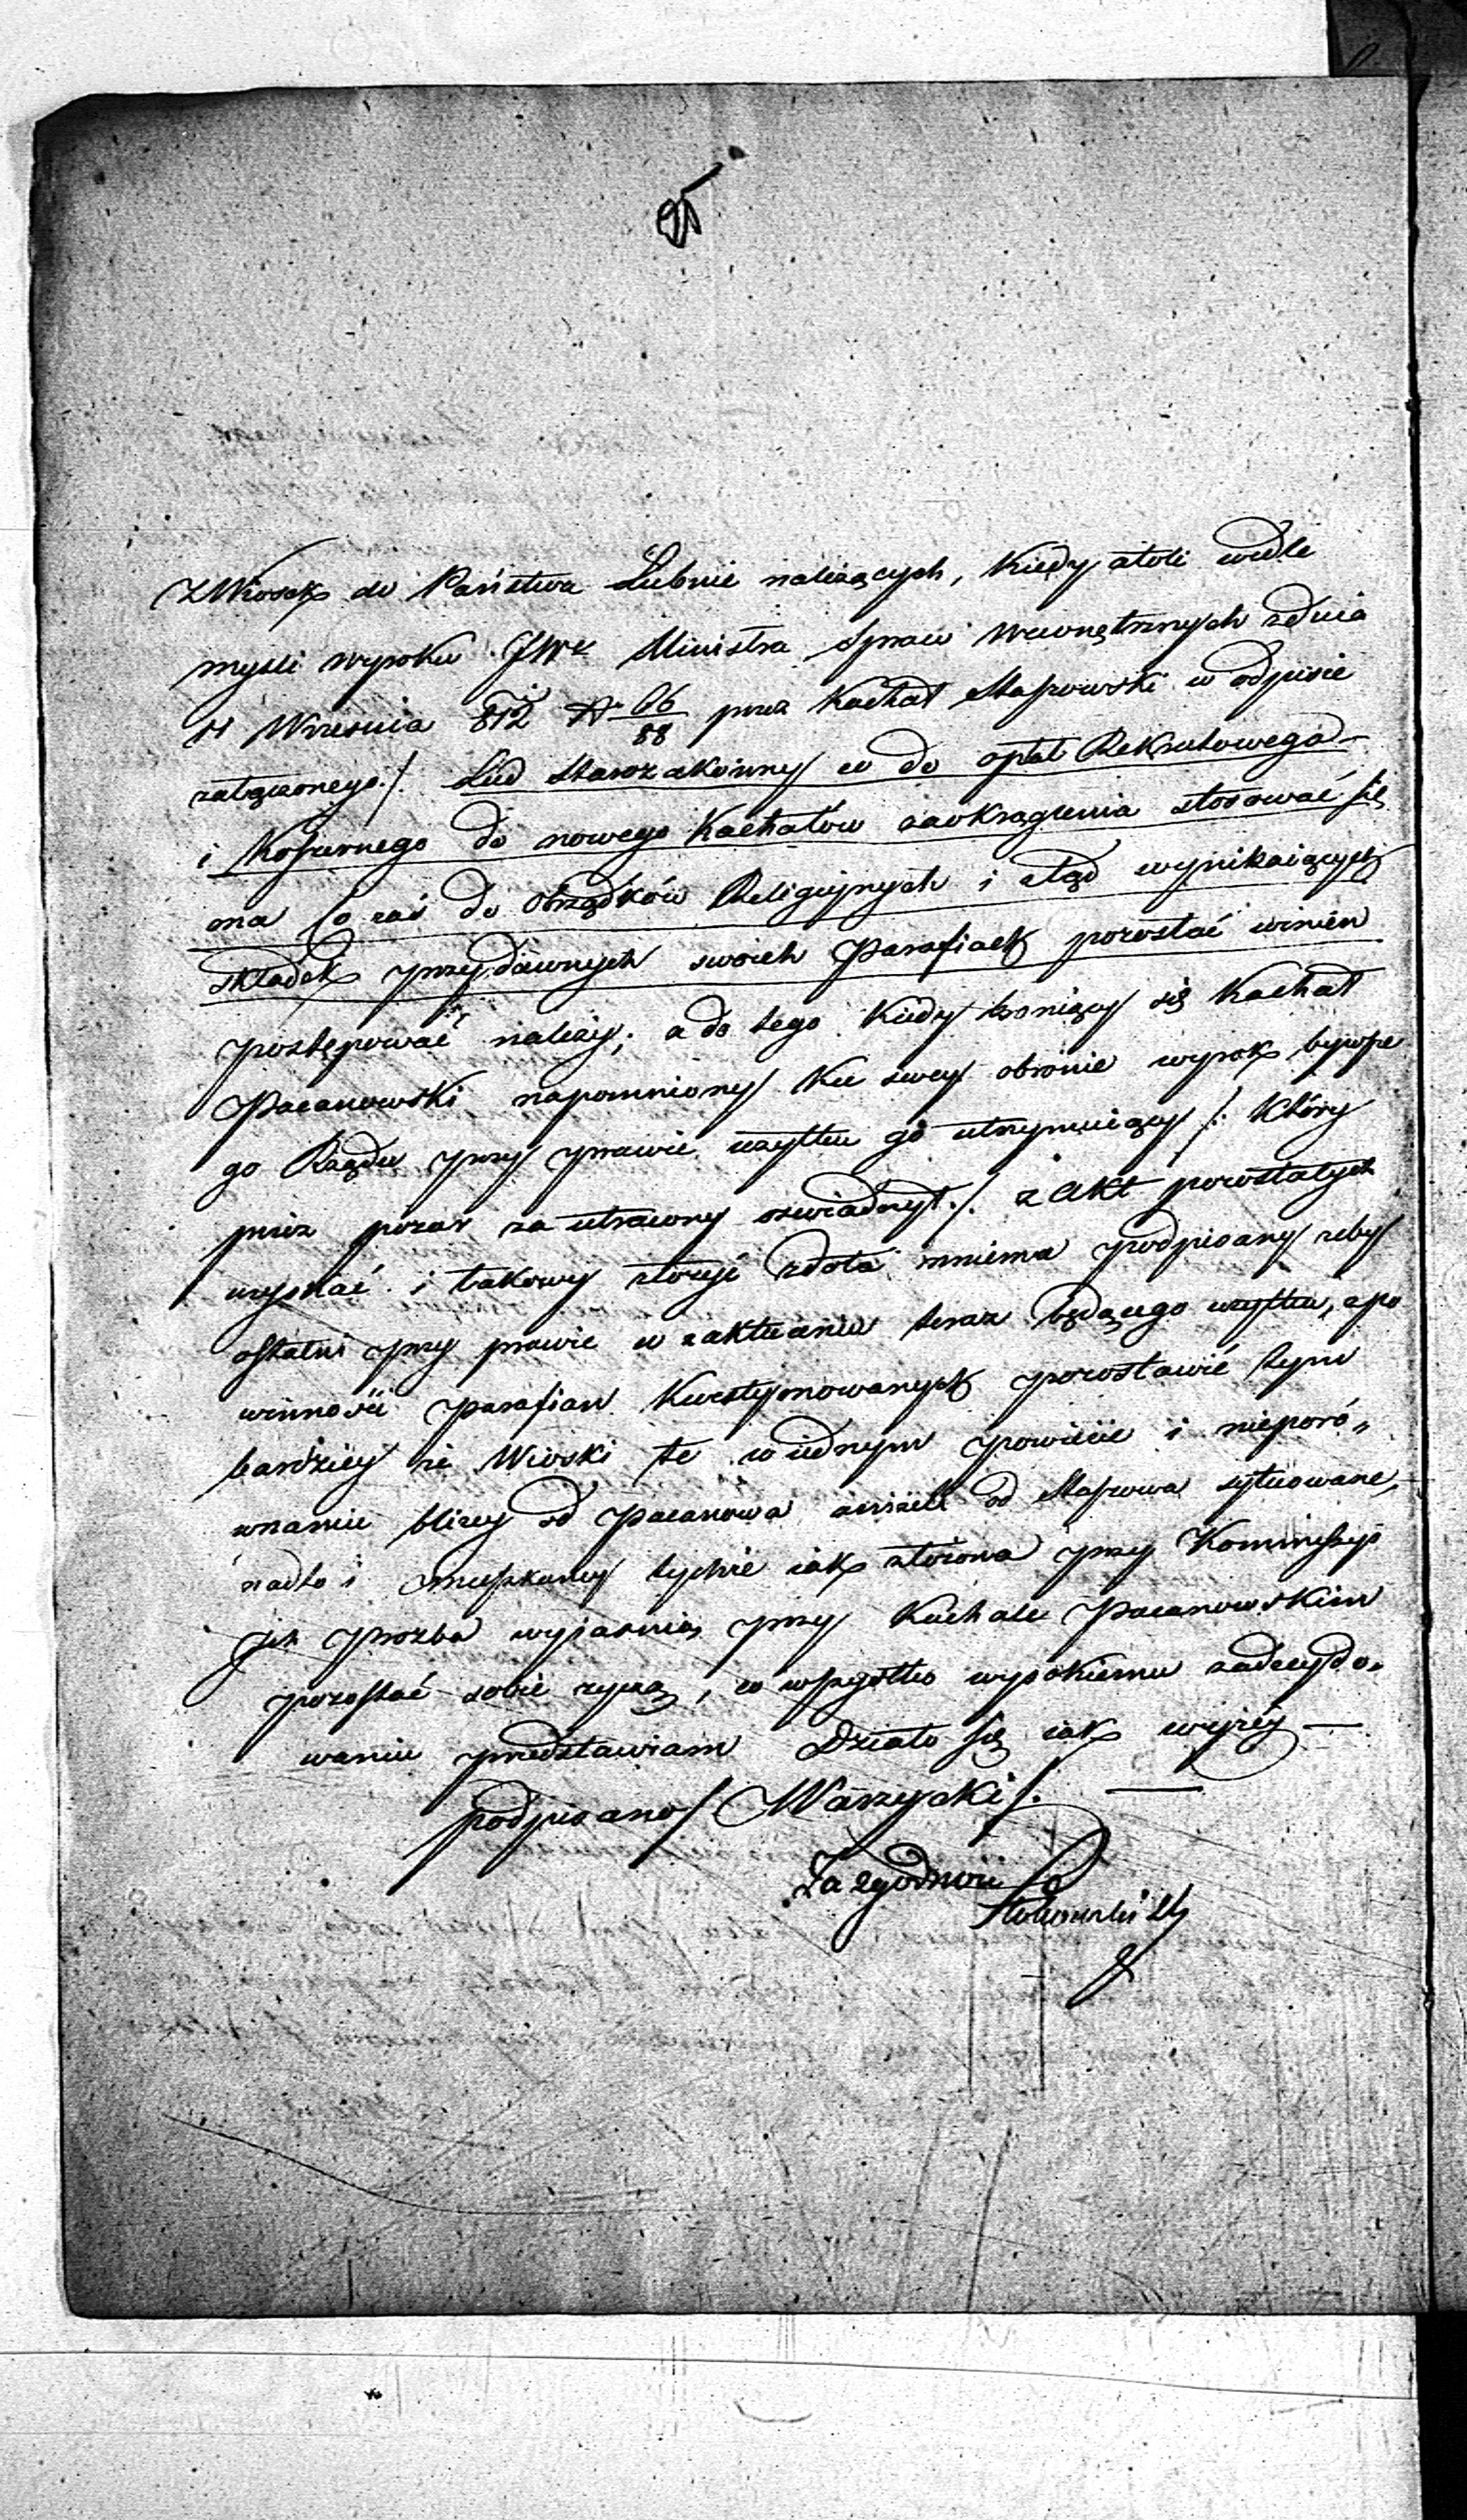 z Wiosek do Państwa Łubnie należących, kiedy atoli wedle
myśli wyroku JWo Ministra Spraw Wewnętrznych zdnia
11 Września 812 N 66/88 przez Kachał Staszowski w odpisie
załączonego /. Lud Starozakonny co do opłat Rekrutowego
i Koszernego do nowego Kachałów zaokrąglenia stosować się
ma Co zaś do Obrządków Religijnych i ztąd wynikaiących
składek przy dawnych swoich Parafiach pozostać winien
postępować należy; a do tego kiedy broniący się Kachał
Pacanowski napomniony ku swey obronie wyrok bywsze
go Rządu przy prawie użytku go utrzymuiący /: który
przez pożar za utracony oświadczył ./. z Akt pozostałych
uzyskać i takowy złożyć zdoła mniema podpisany żeby
ostatni przy prawie w zaktuaniu teraz będącego użytku, a po
winności parafian kwestyonowanych pozostawić tym
bardziey że Wioski te w iednym powiecie i nieporó„
wnanie bliżey od Pacanowa aniżeli od Staszowa sytuowane,
nadto i mieszkańcy tychże iak złożona przy Kommissyi
Jch prozba wyiaśnia, przy Kachale Pacanowskim
pozostać sobie życzą, co wszystko wysokiemu zadecydo„
waniu przedstawiam Działo się iak wyżey —
podpisano / Warzycki /. —
Za zgodność